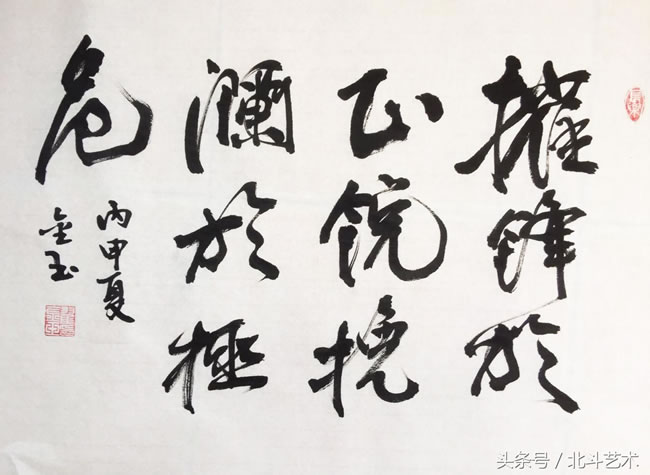 摧锋於
正锐挽
澜於極
危
丙申夏
金玉
头条号 / 北斗艺术